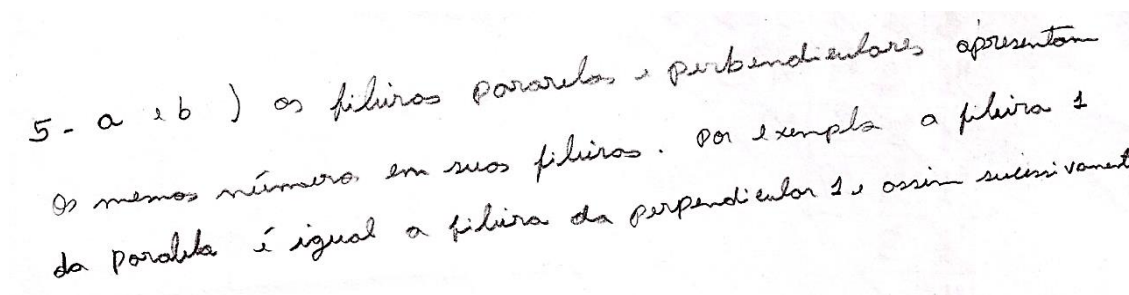 5 - a e b ) as fileiras pararelas e perbendiculares apresentam
Os mesmos números em suas fileiras. Por exemplo a fileira 1
da paralela é igual a fileira da perpendicular 1 e assim sucessivament